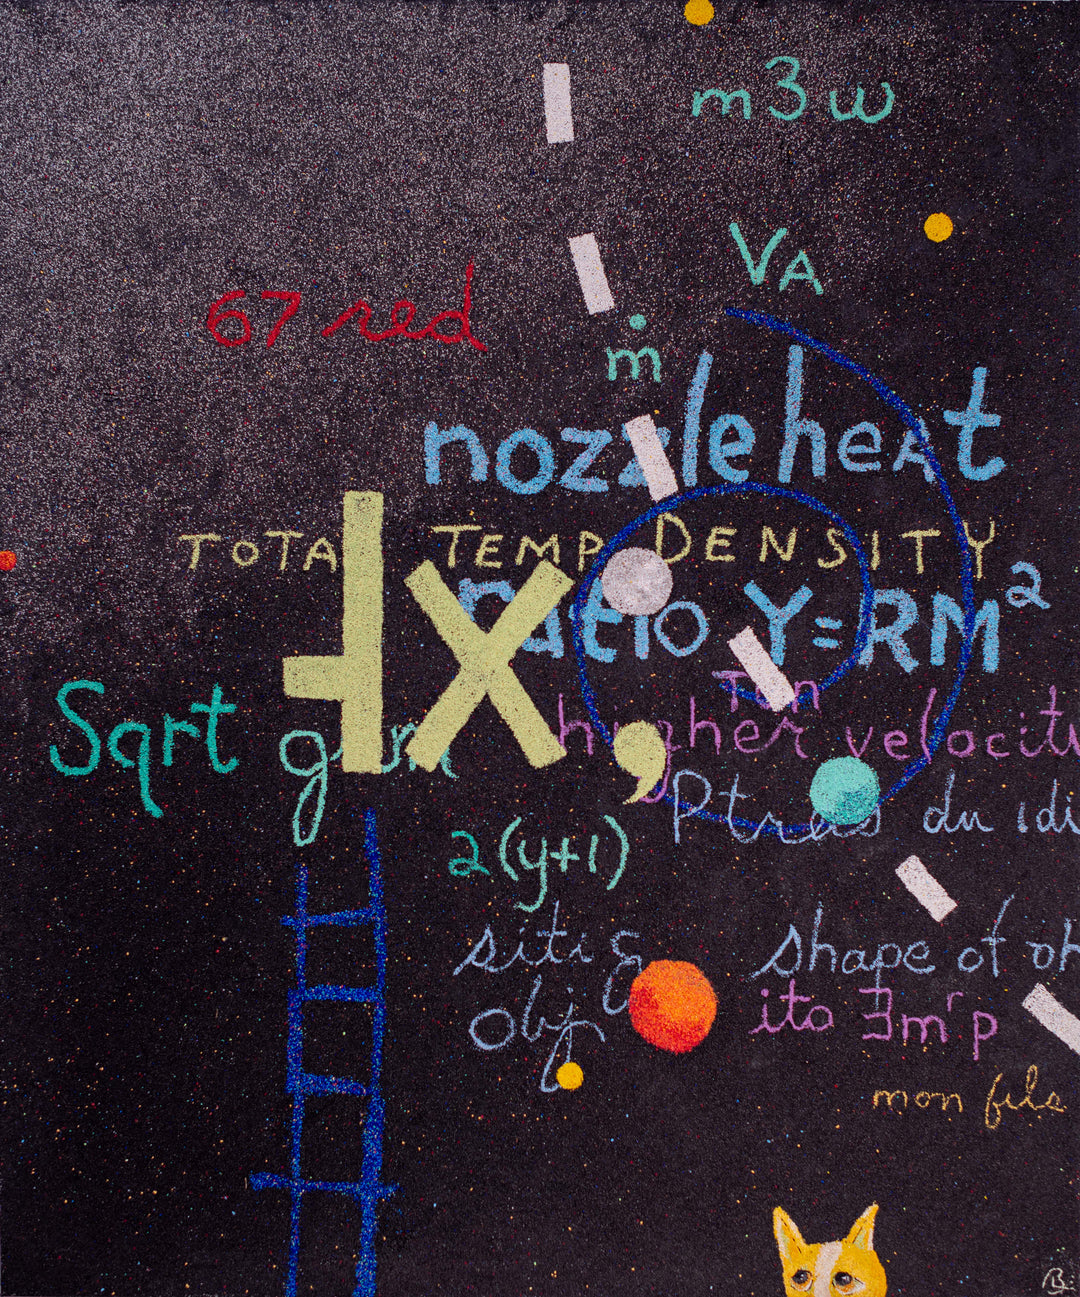 m3w
VA
67 red
ṁ
nozzle heat
TOTA TEMP DENSITY
Ratio Y=RM²
x,
Ton
Sqrt
higher velocity
Ptras du idi
2(y+1)
siti &
shape of oh
obj
ito Ǝm'p
mon fils